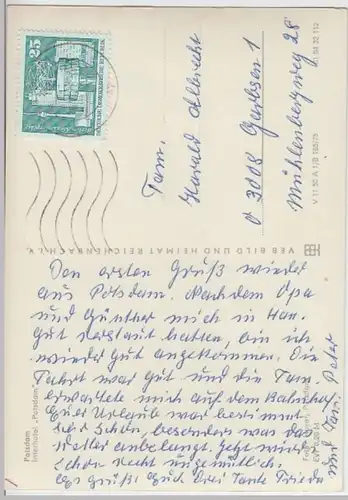 Den ersten Gruß wieder
aus Potsdam. Nachdem Opa
und Günther mich in Han.
gut verstaut hatten, bin ich
wieder gut angekommen. Die
Fahrt war gut und die Fam.
erwartete mich auf dem Bahnhof.
Euer Urlaub war bestimmt
sehr schön, besonders was das
Wetter anbelangt. Jetzt wird's
schon recht ungemütlich.
Es grüßt Euch Tante Frieda
und Fam. Peter
Fam.
Harald Albrecht
3008 Garbsen 1
Mühlenbergweg 28
25
VEB BILD UND HEIMAT REICHENBACH I. V.
V 11 50 A 1/B 195/75
Potsdam
Interhotel „Potsdam"